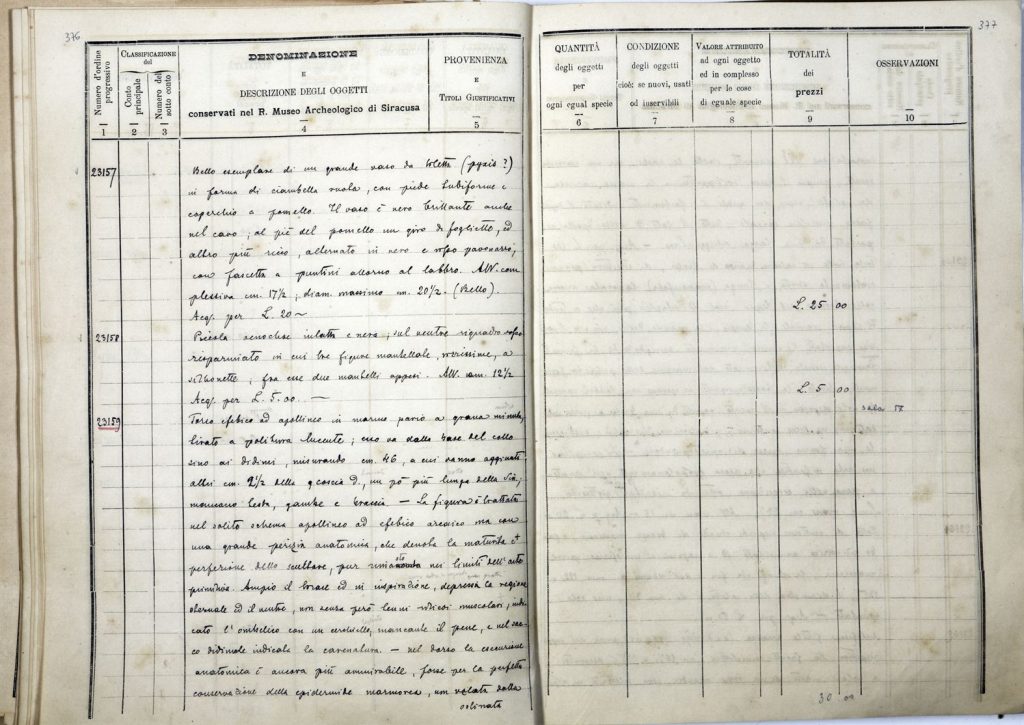 376
Numero d'ordine progressivo
CLASSIFICAZIONE del
Conto principale
Numero del sotto conto
DENOMINAZIONE
E
DESCRIZIONE DEGLI OGGETTI
conservati nel R. Museo Archeologico di Siracusa
PROVENIENZA
E
TITOLI GIUSTIFICATIVI
1 2 3 4 5
23157
Bello esemplare di un grande vaso da toletta (pyxis?)
in forma di ciambella vuota, con piede tubiforme e
coperchio a pomello. Il vaso è nero brillante anche
nel cavo; al piè del pomello un giro di fogliette, ed
altro più ricco, alternato in nero e rosso pavonazzo,
con fascetta a puntini attorno al labbro. Alt. com
plessiva cm. 17½; diam. massimo cm. 20½. (Bello).
Acq. per L. 20 ~
23158
Piccola oenochoe nera; sul ventre riquadro rosso
risparmiato in cui tre figure mantellate, nerissime, a
silhouette; fra esse due mantelli appesi. Alt. cm. 12½
Acq. per L. 5.00. —
23159
Torso efebico ad apollineo in marmo pario a grana minuta,
tirato a politura lucente; esso va dalla base del collo
sino ai didimi, misurando cm. 46, a cui vanno aggiunti
altri cm. 9½ della coscia d., un pò più lunga della sin.;
mancano testa, gambe e braccia — La figura è trattata
nel solito schema apollineo ad efebico arcaico ma con
una grande perizia anatomica, che denota la maturità e
perfezione dello scultore, pur nei limiti dell'arte
Ampio il torace ed in inspirazione, depressa la regione
sternale ed il ventre, non senza però lievi indici muscolari, indi
cato l'ombelico con un cerchiello, mancante il pene, e nel sac
co didimale indicata la — nel dorso la escursione
anatomica è ancora più ammirabile, forse per la perfetta
conservazione della epidermide marmorea, un velata dalla
ostinata
377
QUANTITÀ
degli oggetti
per
ogni egual specie
CONDIZIONE
degli oggetti
cioè: se nuovi, usati
od inservibili
VALORE ATTRIBUITO
ad ogni oggetto
ed in complesso
per le cose
di eguale specie
TOTALITÀ
dei
prezzi
OSSERVAZIONI
6 7 8 9 10
L. 25 00
L. 5 00
sala
30 00